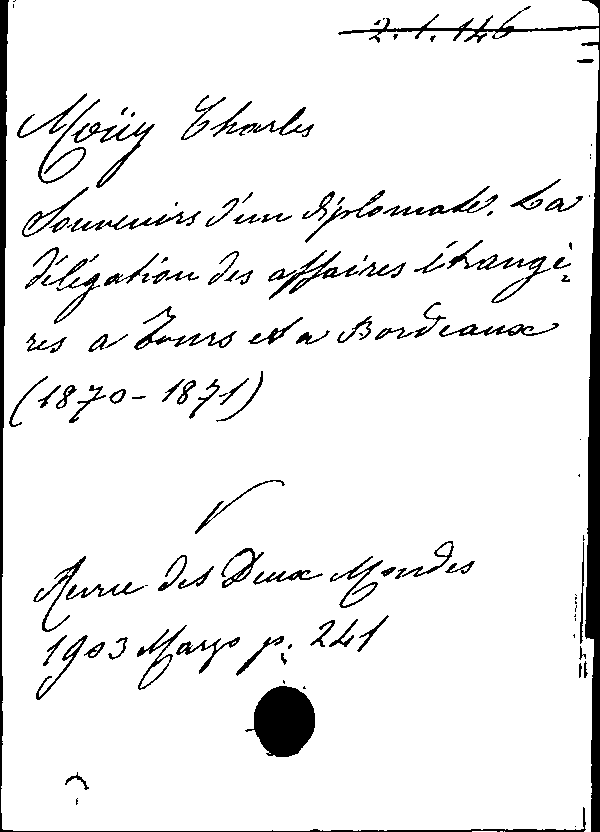 2.1.146
Moüy Charles
Souvenirs d'un diplomate. La
délégation des affaires étrangè-
res a Tours et a Bordeaux
(1870-1871)
Revue des Deux Mondes
1903 Marzo p. 241